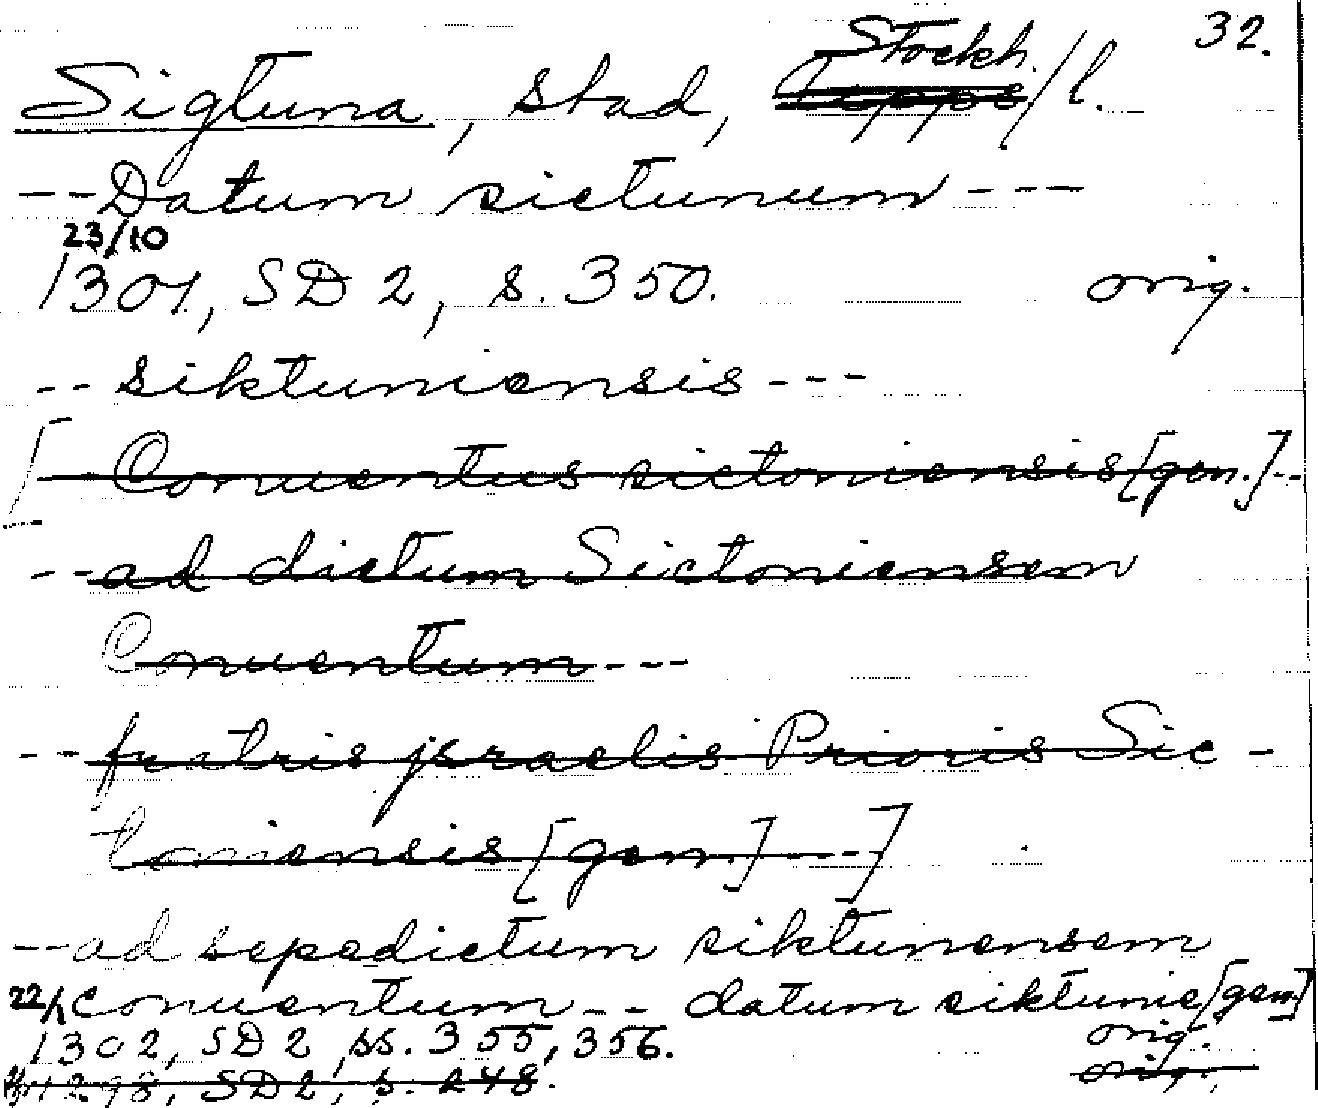 32.
Stockh.
Sigtuna, stad, Upps/l.
--Datum sictunum---
23/10
1301, SD 2, s. 350. orig.
-- siktuniensis---
[-Conuentus sictoniensis [gen.]--
--ad dictum Sictoniensem
Conuentum---
--fratris jsraelis Prioris Sic-
toniensis [gen.]---]
--ad sepedictum siktunensem
22/1 conuentum-- datum siktunie [gen.]
1302, SD 2, ss. 355, 356. orig.
1298, SD 2, s. 248. orig.